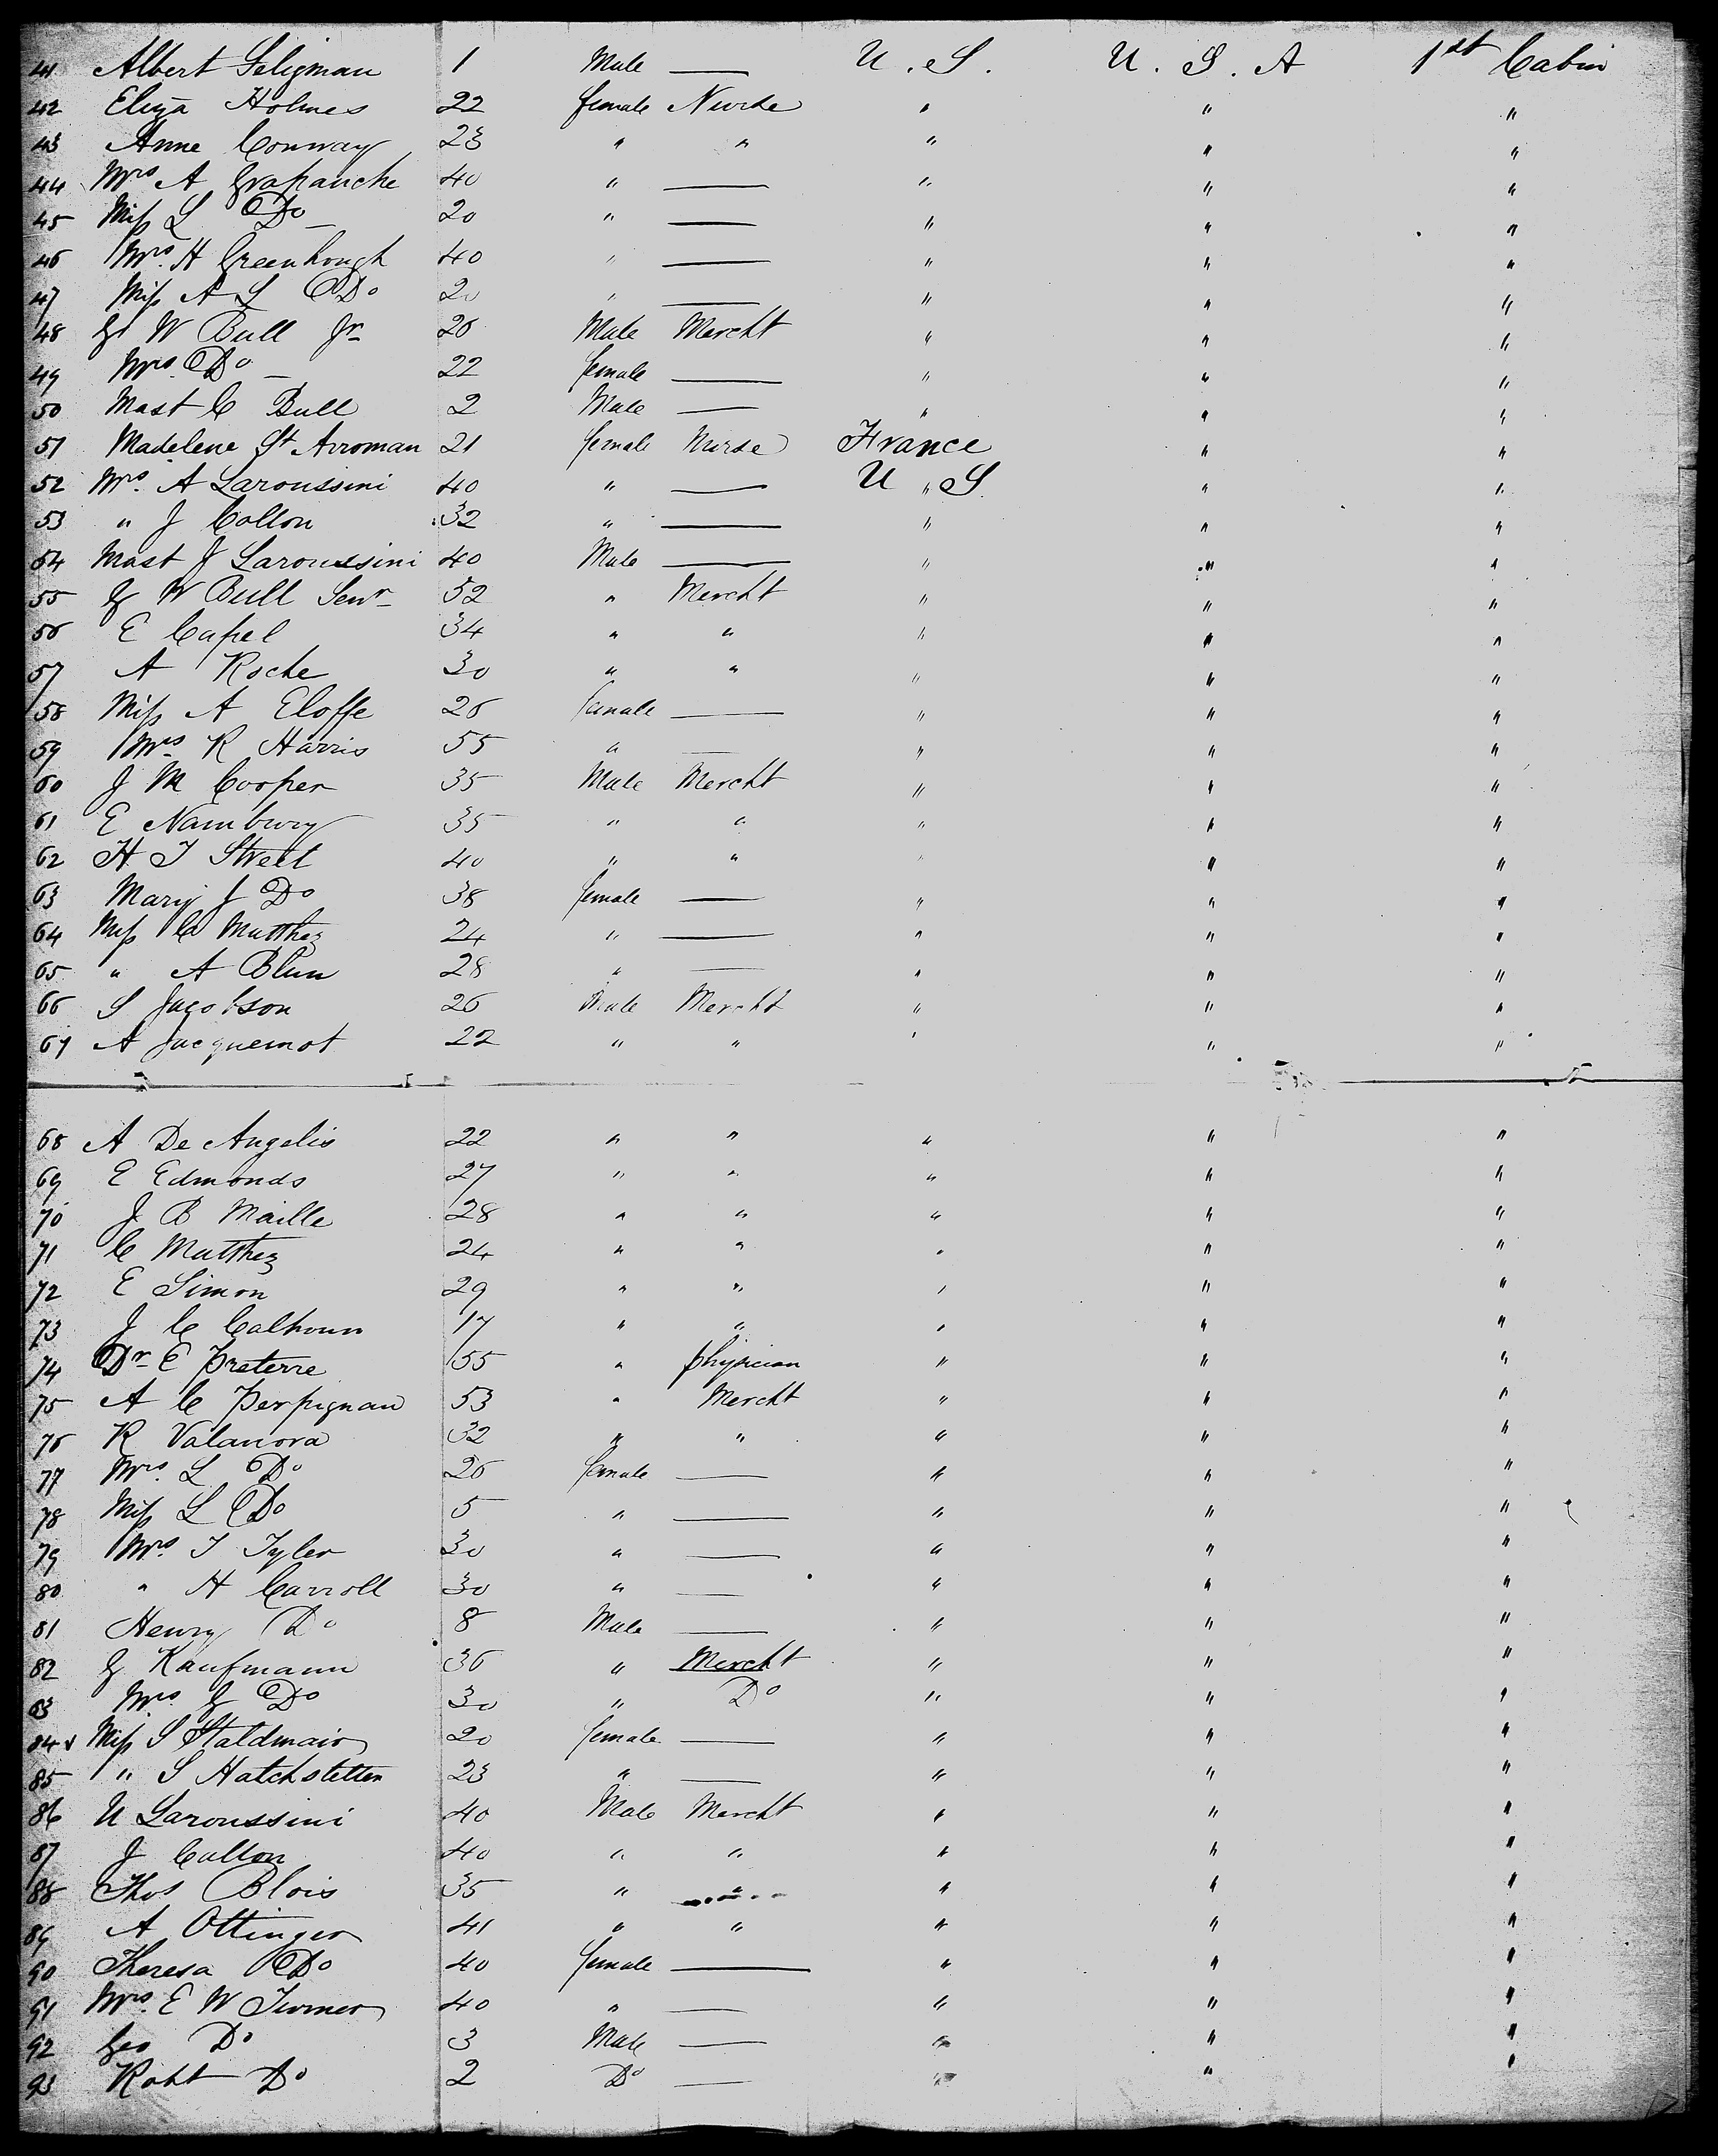 41 Albert Seligman 1 Male — U. S. U. S. A 1st Cabin
42 Eliza Holmes 22 female Nurse " " "
43 Anne Conway 23 " " " " "
44 Mrs A Grapanche 40 " — " " "
45 Miss L Do 20 " — " " "
46 Mrs. H Greenhough 40 " — " " "
47 Miss A L Do 20 " — " " "
48 G W Bull Jr 26 Male Mercht " " "
49 Mrs. Do 22 female — " " "
50 Mast C Bull 2 Male — " " "
51 Madelene St Arroman 21 female Nurse France " "
52 Mrs. A Laroussini 40 " — U " S. " "
53 " J Collon 32 " — " " "
54 Mast J Laroussini 40 Male — " " "
55 G W Bull Senr 52 " Mercht " " "
56 E Capel 34 " " " " "
57 A Roche 30 " " " " "
58 Miss A Eloffe 26 female — " " "
59 Mrs R Harris 55 " — " " "
60 J M Cooper 35 Male Mercht " " "
61 E Namburg 35 " " " " "
62 H. T Street 40 " " " " "
63 Mary J Do 38 female — " " "
64 Miss C Matthez 24 " — " " "
65 " A Blun 28 " — " " "
66 S Jacobson 26 Male Mercht " " "
67 A Jacquemot 22 " " " " "
68 A De Angelis 22 " " " " "
69 E Edmonds 27 " " " " "
70 J B Maille 28 " " " " "
71 C Matthez 24 " " " " "
72 E Simon 29 " " " " "
73 J C Calhoun 17 " " " " "
74 Dr E Preterre 55 " physician " " "
75 A C Perpignan 53 " Mercht " " "
76 R Valanora 32 " " " " "
77 Mrs. L Do 26 female — " " "
78 Miss L Do 5 " — " " "
79 Mrs. T Tyler 30 " — " " "
80 " H Carroll 30 " — " " "
81 Henry Do 8 Male — " " "
82 G Kaufmann 36 " Mercht " " "
83 Mrs. G Do 30 " Do " " "
84 Miss S Staldmair 20 female — " " "
85 " S Hatchstetten 23 " — " " "
86 U Laroussini 40 Male Mercht " " "
87 J Collon 40 " " " " "
88 Thos Blois 35 " " " " "
89 A Ottinger 41 " " " " "
90 Theresa Do 40 female — " " "
91 Mrs. E W Turner 40 " — " " "
92 Geo Do 3 Male — " " "
93 Robt Do 2 Do — " " "